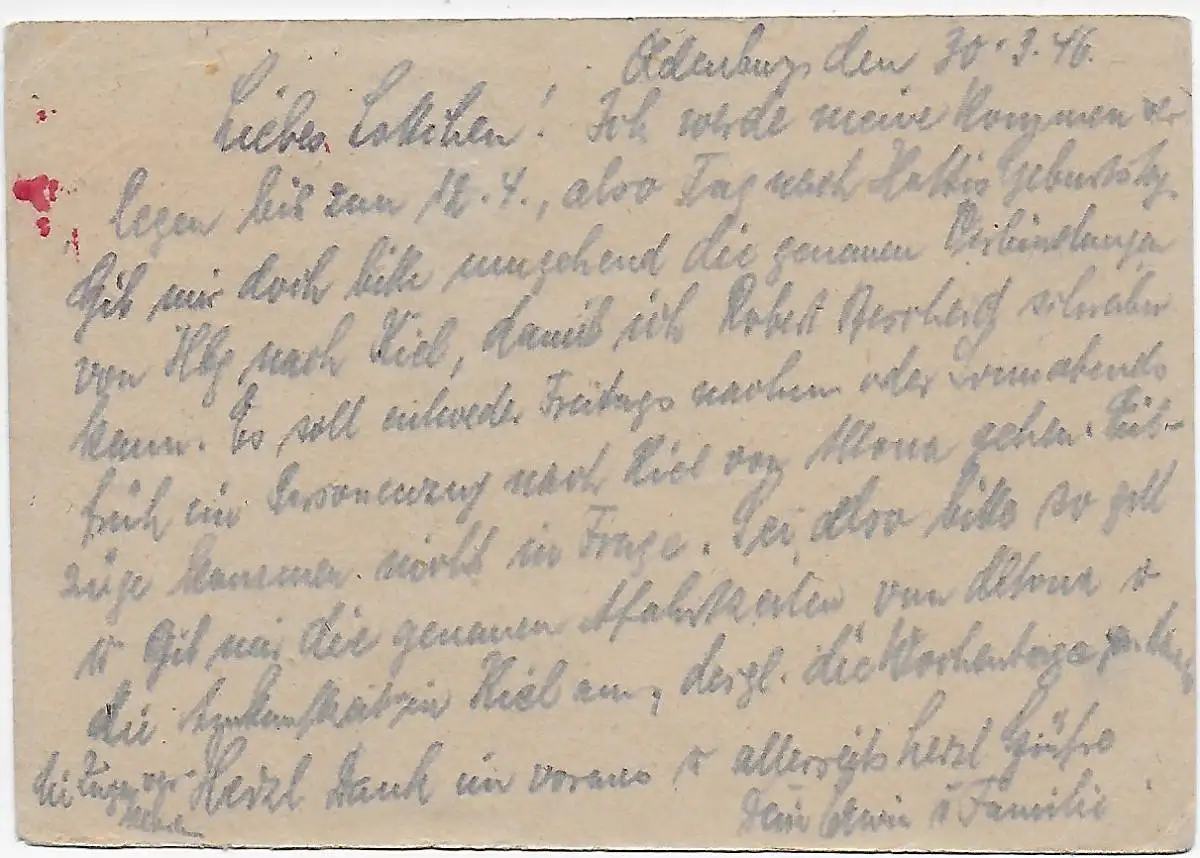 Oldenburg, den 30.3.46.
Liebes Lottchen! Ich werde meine Kommen ver
legen bis zum 12.4., also Tag nach Hattis Geburtstag.
Gib mir doch bitte umgehend die genauen Verbindungen
von Hbg nach Kiel, damit ich Robert Bescheid schreiben
kann. Es soll entweder Freitags nachm oder Sonnabends
früh ein Personenzug nach Kiel von Altona gehen. Eil-
züge kommen nicht in Frage. Sei also bitte so gut
u gib mir die genauen Abfahrtzeiten von Altona u
die Ankunftzeit in Kiel an, desgl. die Wochentage, an
die Züge
Herzl Dank im voraus u allerseits herzl Grüße
Dein Erwin u Familie